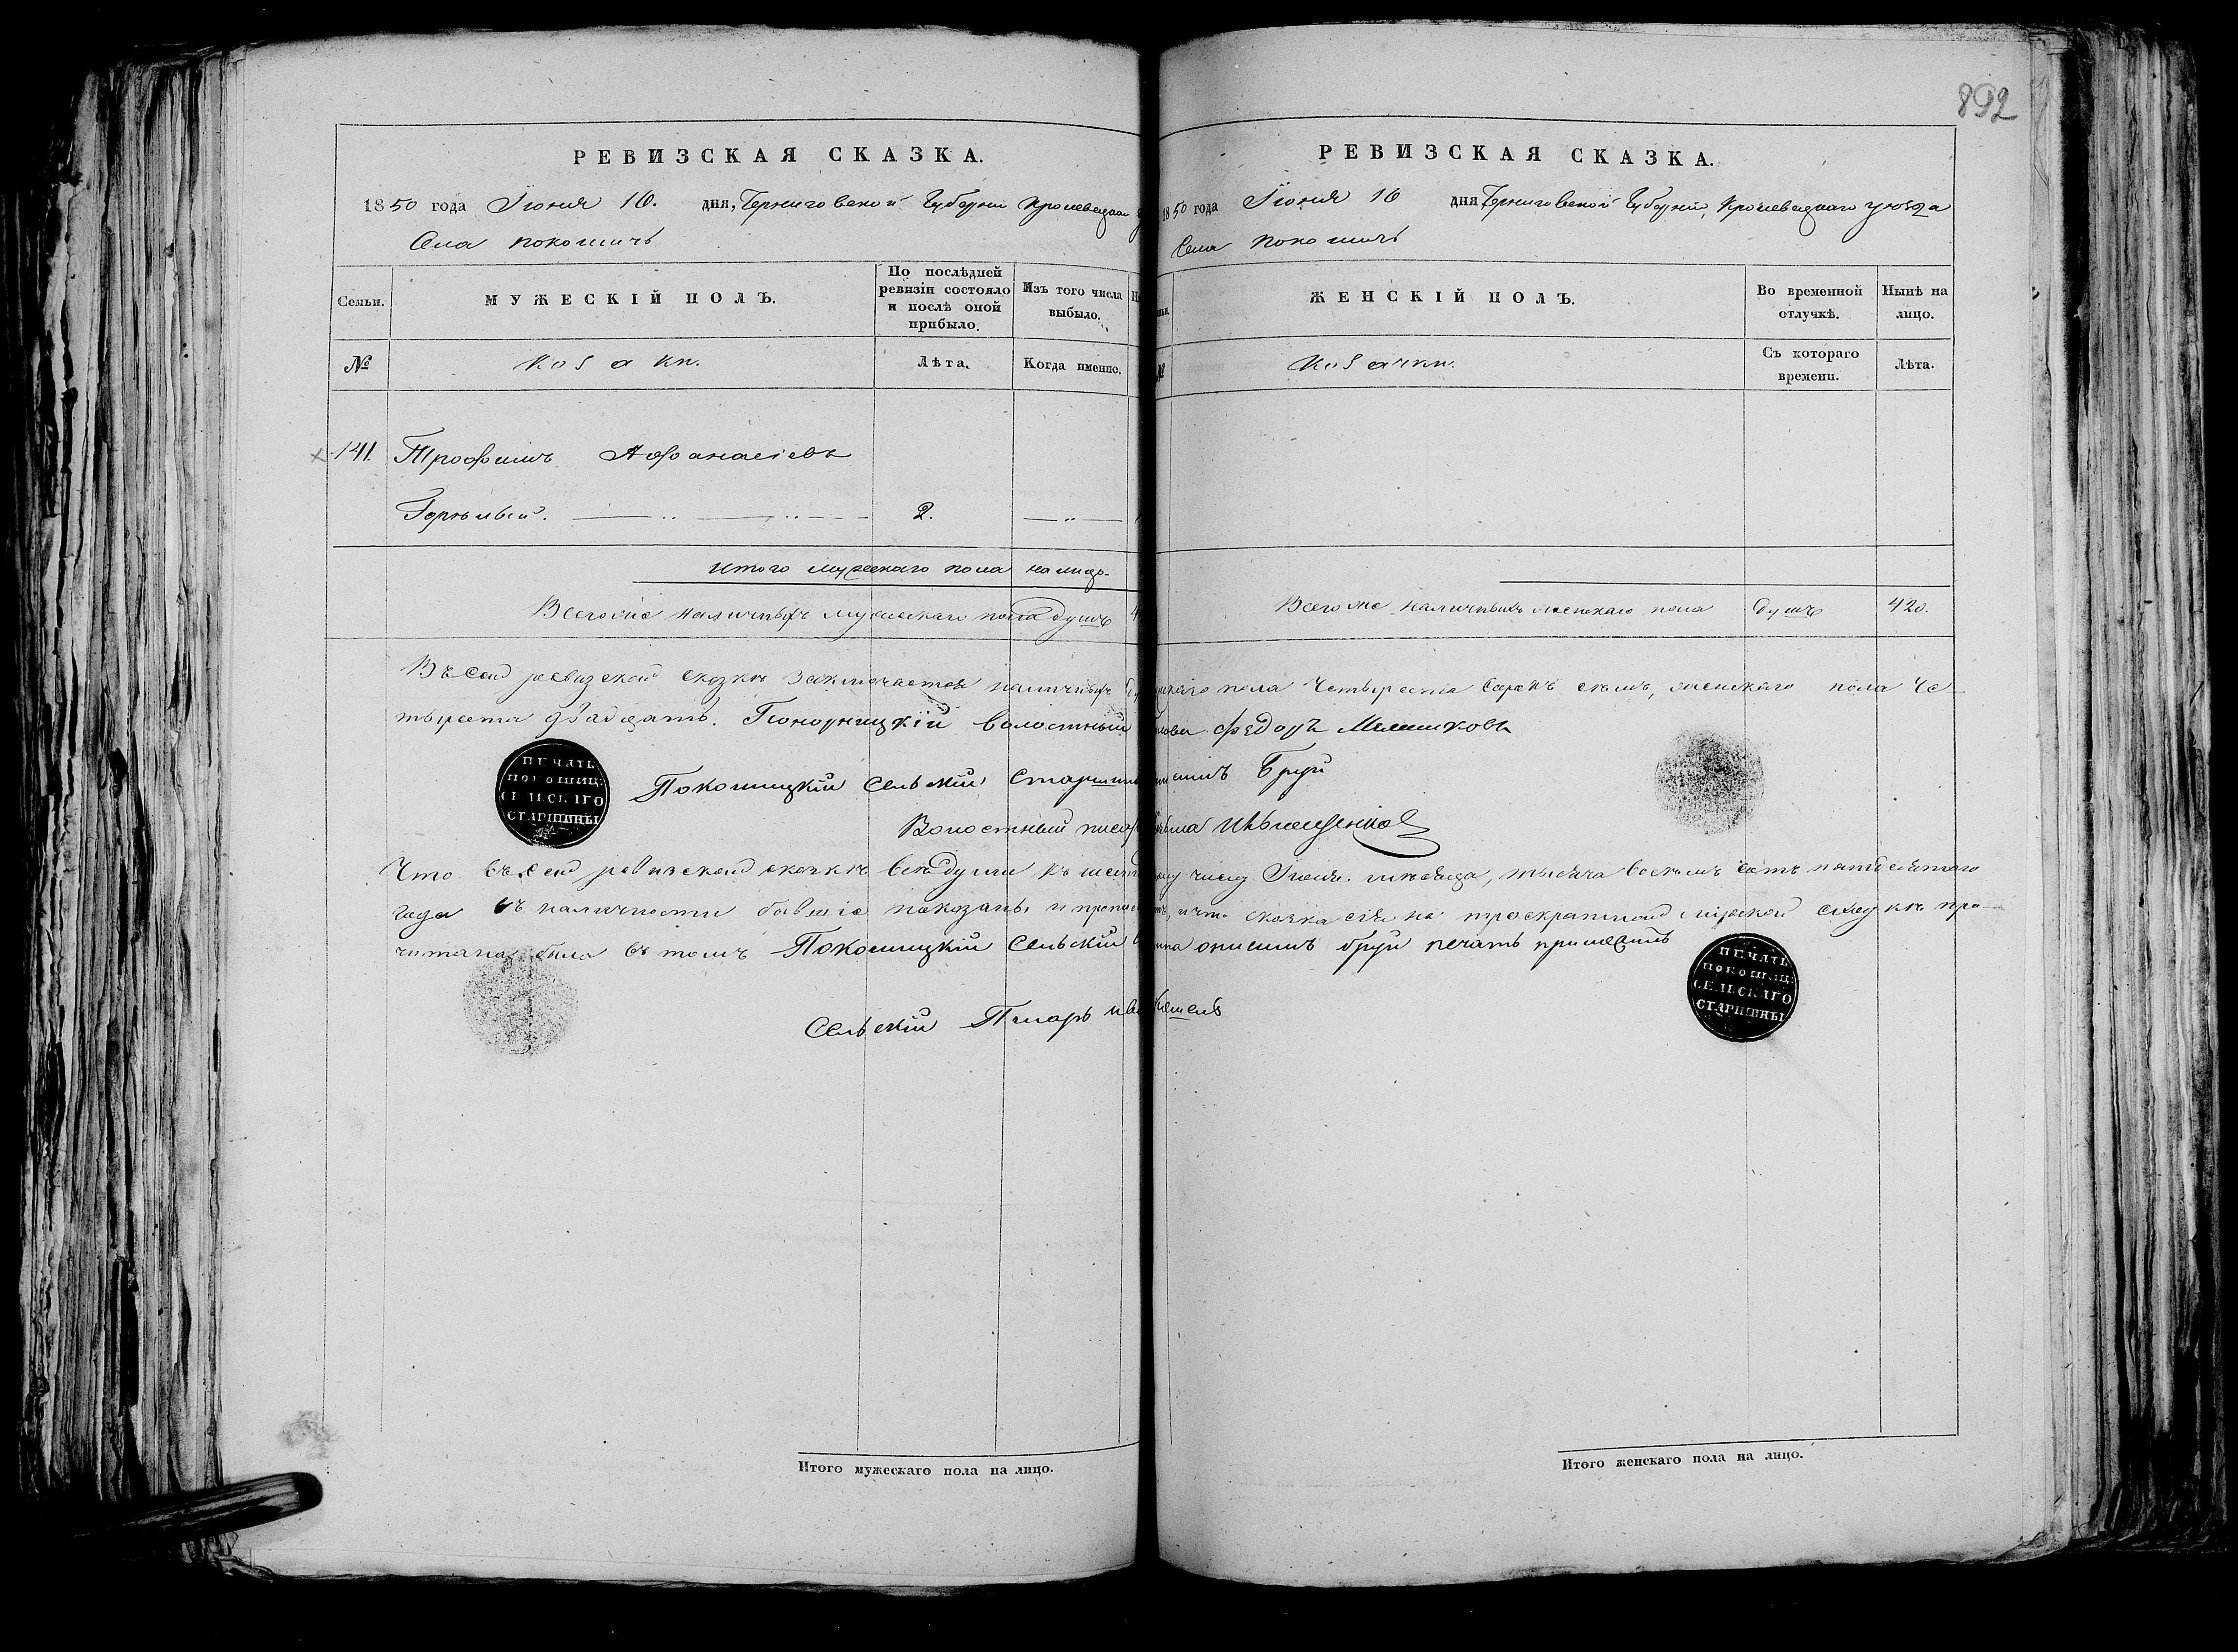 892
РЕВИЗСКАЯ СКАЗКА.
1850 года Іюня 16. дня, Черниговской Губерніи Кролевецкаго
Села Покошичь
Семьи. МУЖЕСКІЙ ПОЛЪ. По послѣдней ревизіи состояло и послѣ оной прибыло. Изъ того числа выбыло.
№ Козаки. Лѣта. Когда именно.
141. Трофимъ Афанасіевъ
2.
Итого мужескаго пола налицо.
Всего же наличныхъ мужескаго пола душъ 4
РЕВИЗСКАЯ СКАЗКА.
1850 года Іюня 16 дня Черниговской Губерніи, Кролевецкаго уѣзда
Села Покошичь
ЖЕНСКІЙ ПОЛЪ. Во временной отлучкѣ. Нынѣ на лицо.
№ Козачки. Съ котораго времени. Лѣта.
Всего же наличныхъ женскаго пола душъ 420.
Въ сей ревизской сказкѣ заключается наличныхъ пола четыреста сорокъ семь, женскаго пола че-
тыреста двадцать. Понорницкій волостный голова Федоръ
Покошицкій Сельскій Старшина Онисимъ Бруй
Волостный писарь
Что въ сей ревизской сказкѣ всѣ души къ числу Іюня мѣсяца, тысяча восемь сотъ пятдесятого
года въ наличности бывшіе показаны и что сказка сія на троекратной мірской сходкѣ про-
читана была въ томъ Покошицкій Сельскій Старшина Онисимъ Бруй печать приложилъ
Сельскій Писарь
ПЕЧАТЬ
ПОКОШИЦ:
СЕЛЬСКАГО
СТАРШИНЫ
ПЕЧАТЬ
ПОКОШИЦ:
СЕЛЬСКАГО
СТАРШИНЫ
Итого мужескаго пола на лицо.
Итого женскаго пола на лицо.